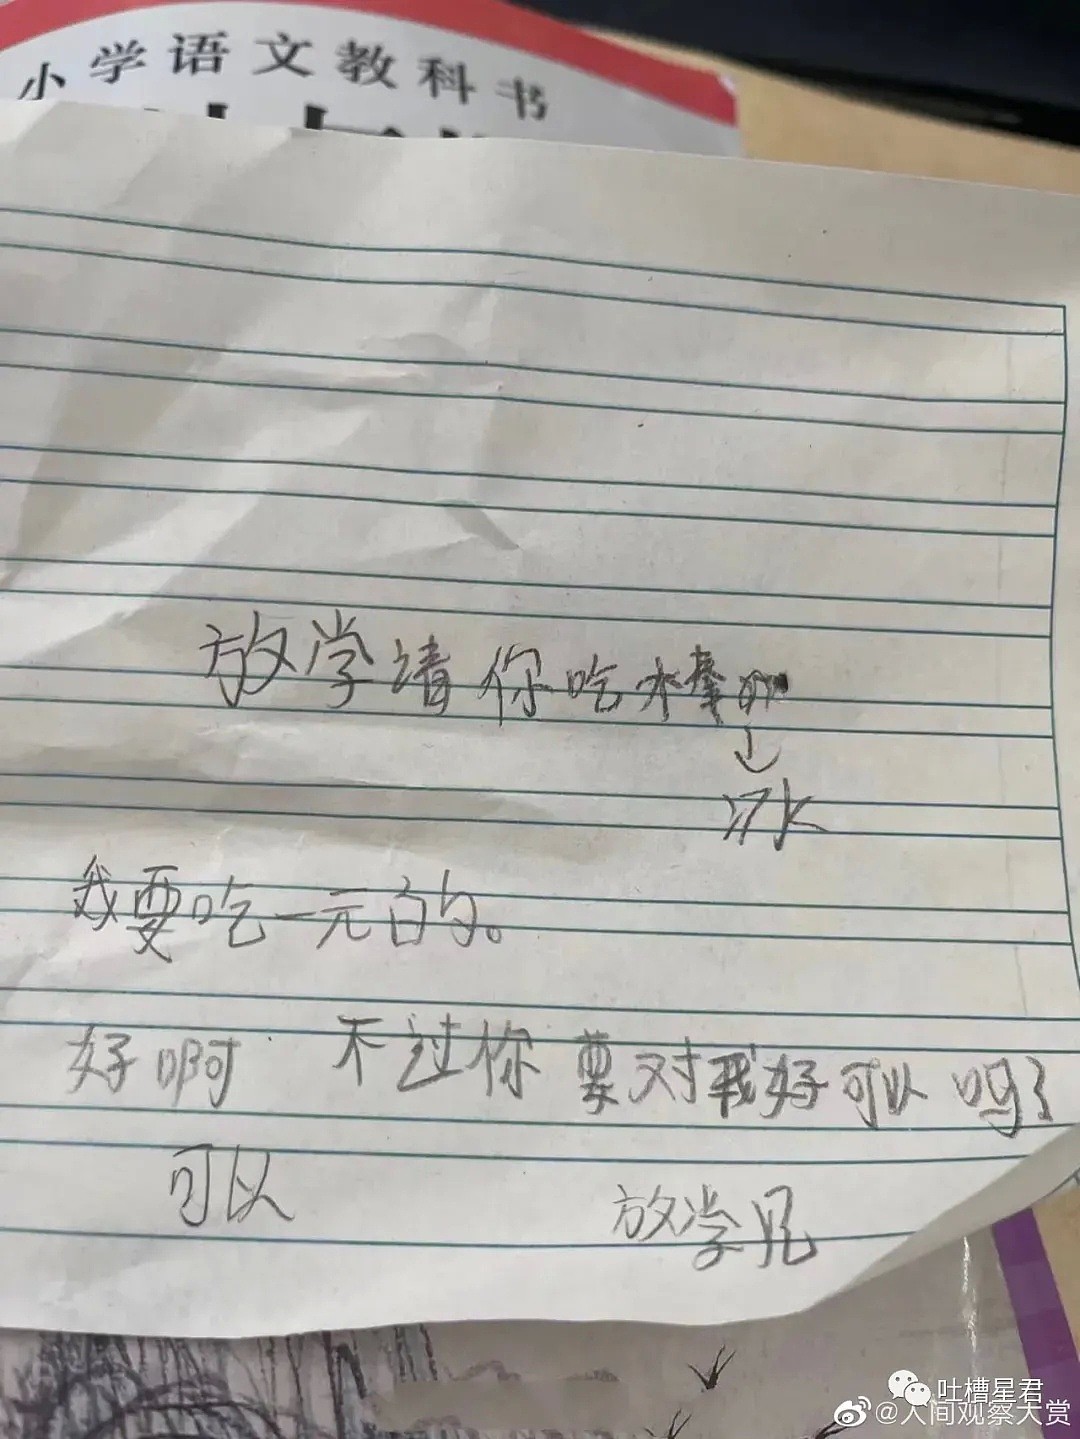 小学语文教科书
放学请你吃水棒
冰
我要吃一元的。
好啊 不过你要对我好可以吗?
可以 放学见
吐槽星君
@人间观察大赏